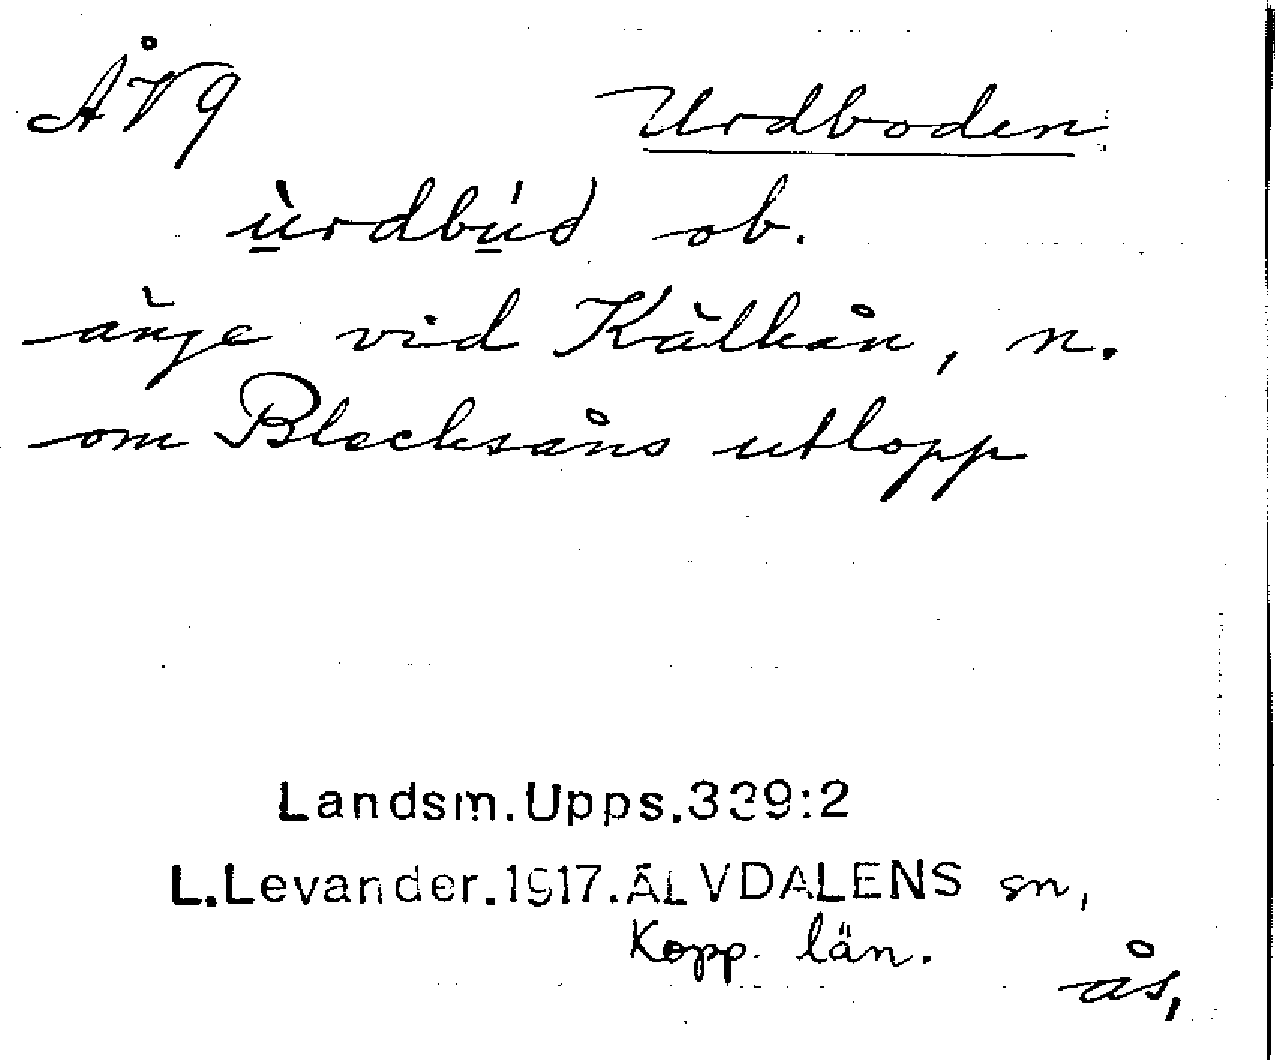 ÅV9 Urdboden
ù̱rdbú̱d ob.
änge vid Kälkån, n.
om Blecksåns utlopp
Landsm.Upps.339:2
L.Levander.1917.ÄLVDALENS sn,
Kopp. län.
ås,